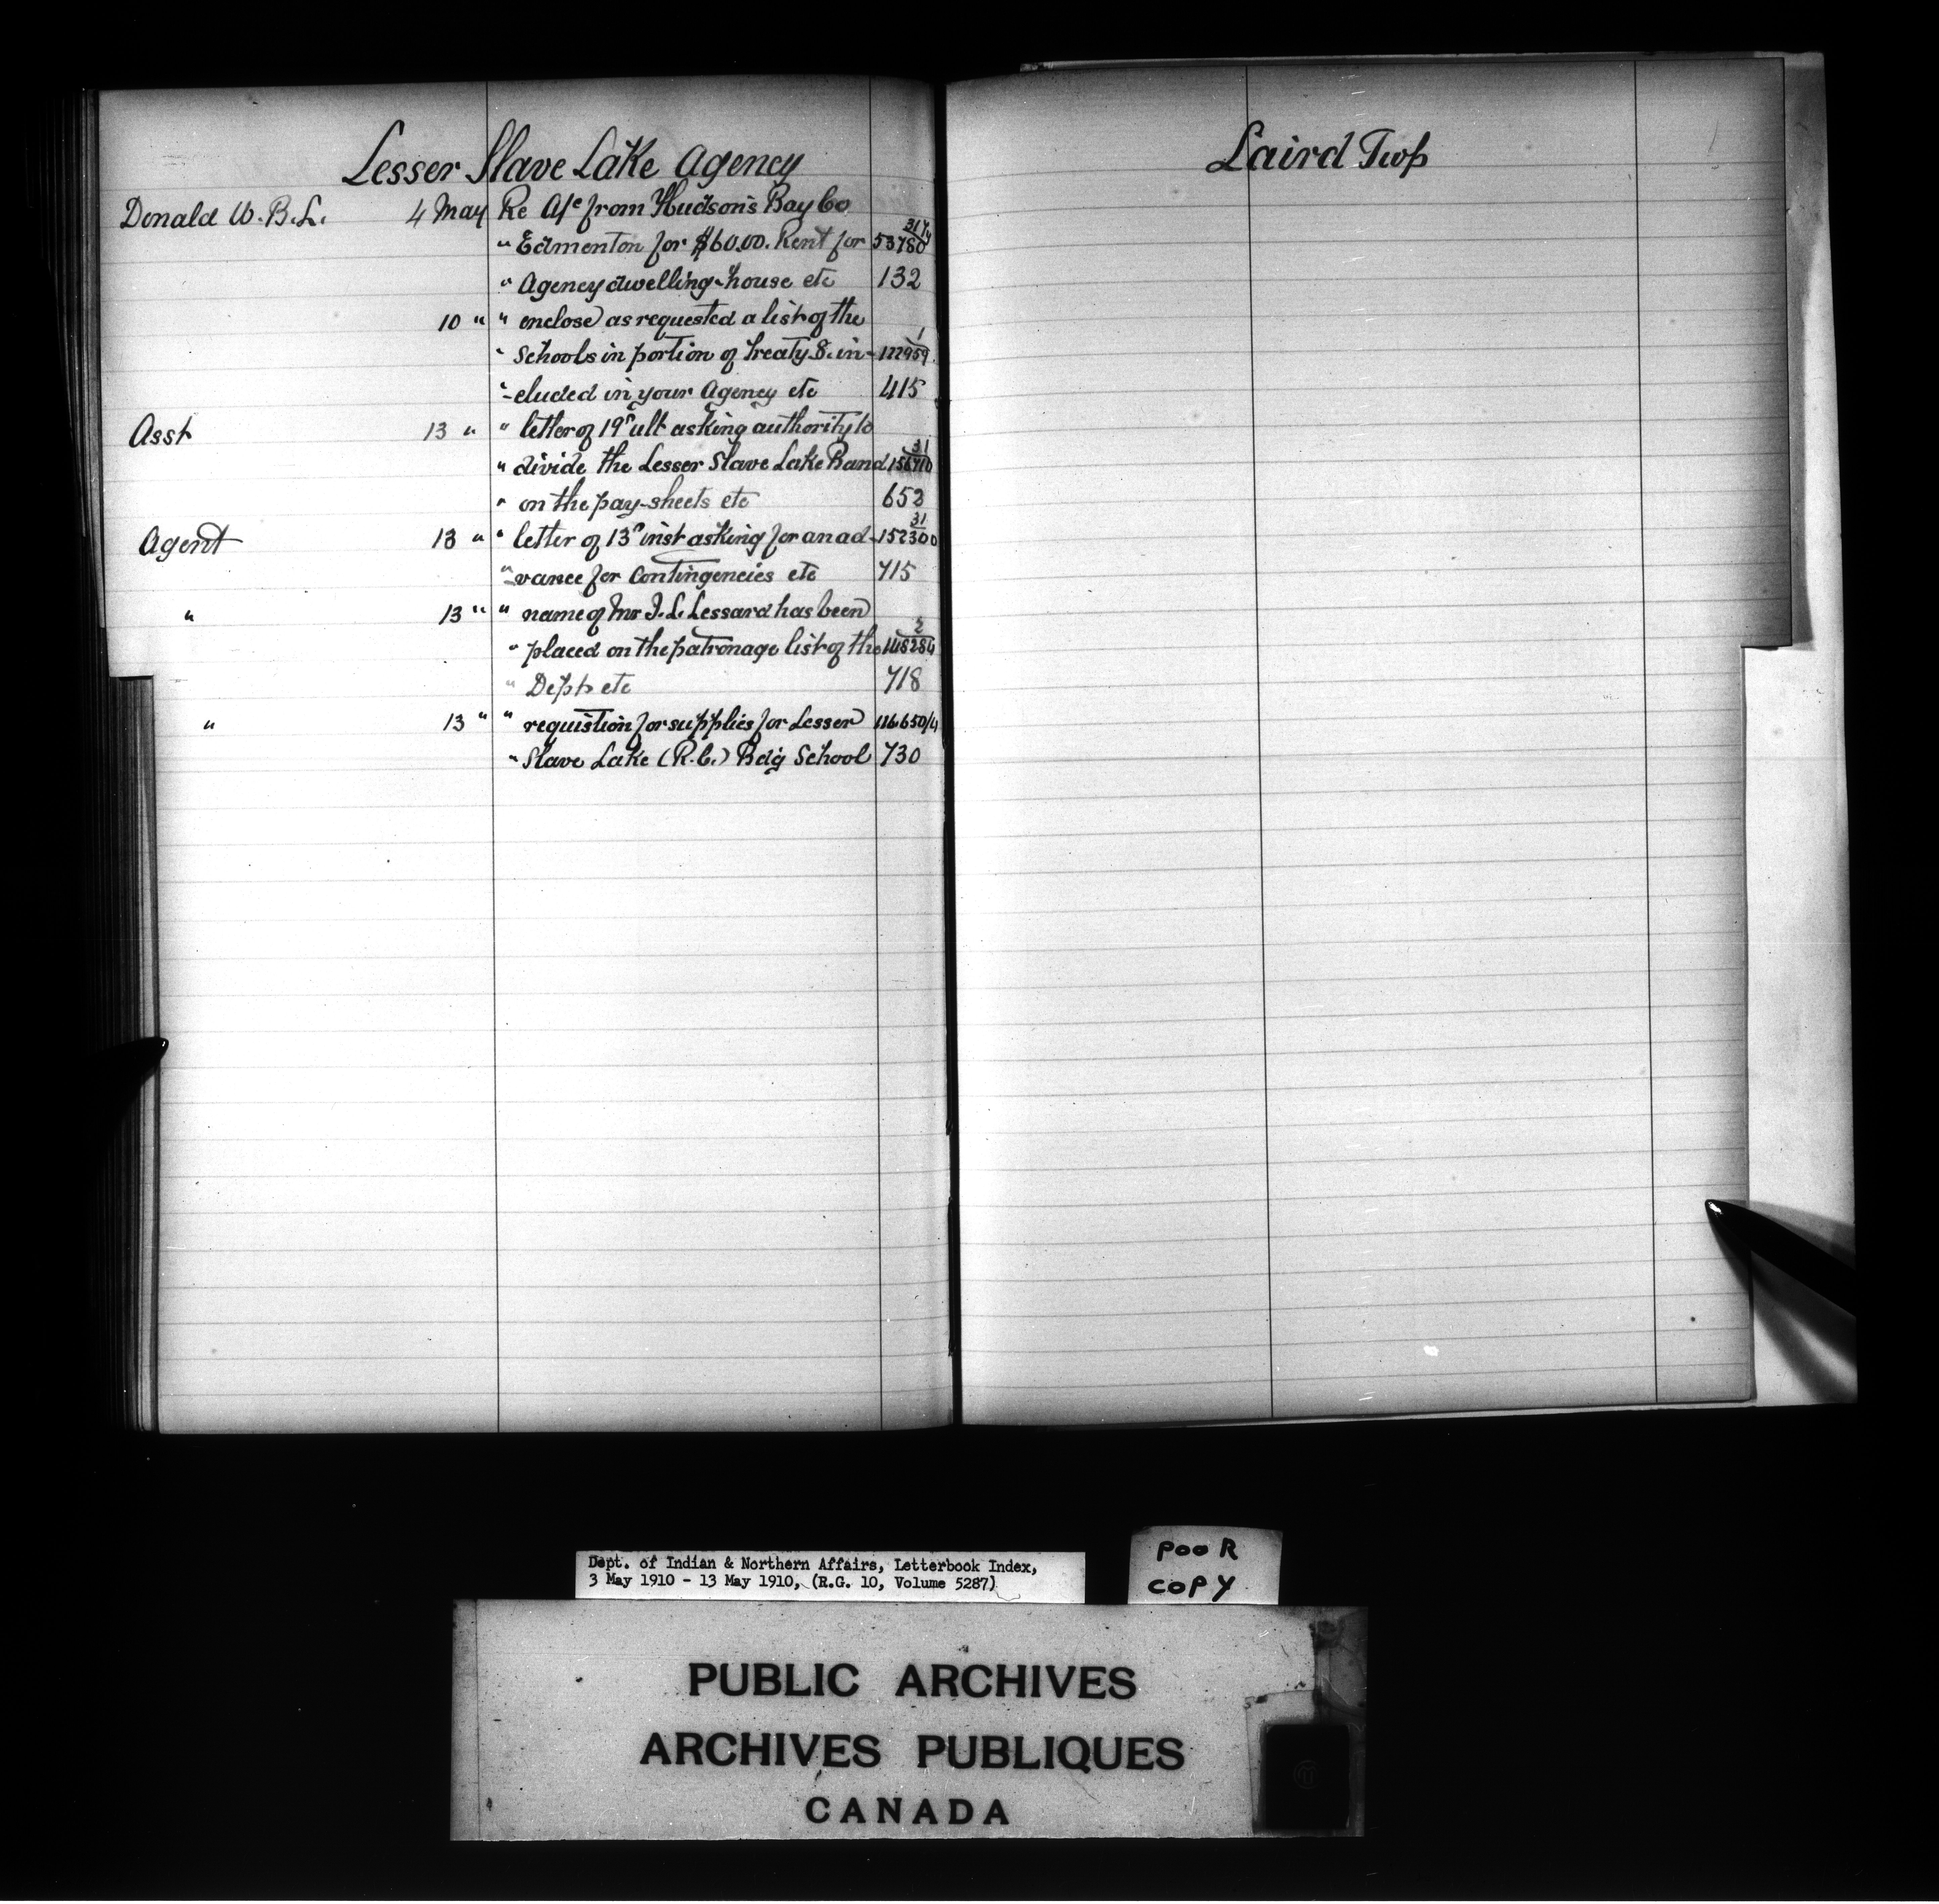 Lesser Slave Lake Agency
Donald W.B.L. 4 May Re A/c from Hudson's Bay Co
" Edmonton for $60.00. Rent for 53780
" Agency dwelling-house etc 132
10 " " enclose as requested a list of the
" Schools in portion of Treaty 8. in- 1/122959.
"-cluded in your Agency etc 415
Asst 13 " " letter of 19th ult asking authority to
" divide the Lesser Slave Lake Band 31/156710
" on the pay-sheets etc 652
Agent 13 " " letter of 13th inst asking for an ad- 31/152300
"-vance for Contingencies etc 715
" 13 " " name of Mr J. L. Lessard has been
" placed on the patronage list of the 2/148284
" Dept etc 718
" 13 " " requistion for supplies for Lesser 116650/4
" Slave Lake (R.C.) Bdg School 730
Laird Twp
Dept. of Indian & Northern Affairs, Letterbook Index,
3 May 1910 - 13 May 1910, (R.G. 10, Volume 5287)
POOR
COPY
PUBLIC ARCHIVES
ARCHIVES PUBLIQUES
CANADA